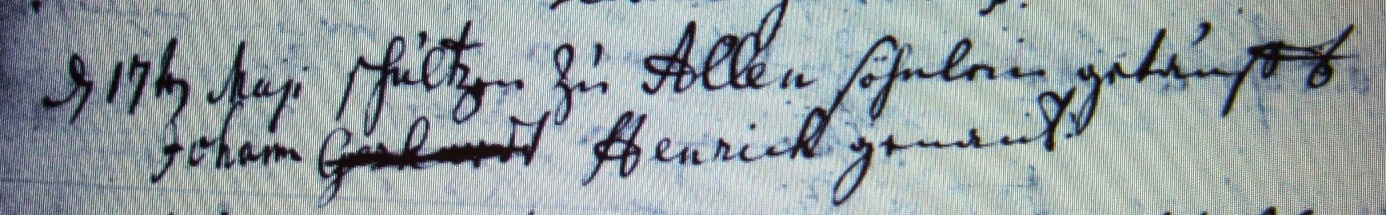 D 17t Maji Schültzen zu Allen Söhnlein getäufft
Johann Henrich genandt